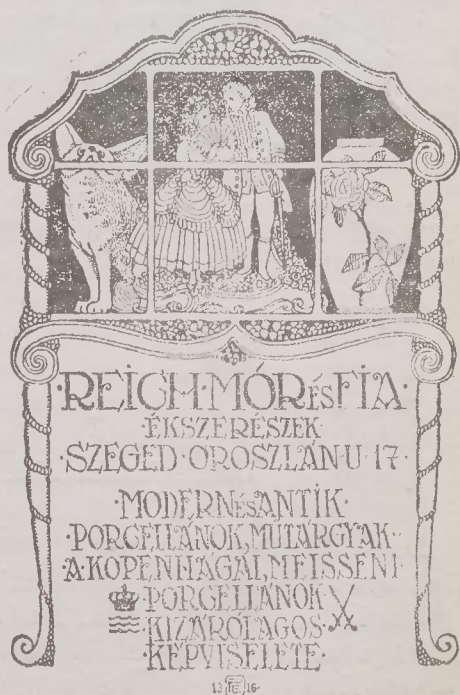 ·REICH·MÓR és FIA·
·ÉKSZERÉSZEK·
·SZEGED·OROSZLÁN·U·17·
·MODERN és ANTIK·
·PORCELLÁNOK, MŰTÁRGYAK·
·A·KOPENHÁGAI, MEISSENI·
·PORCELLÁNOK
KIZÁRÓLAGOS·
KÉPVISELETE·
19 16·